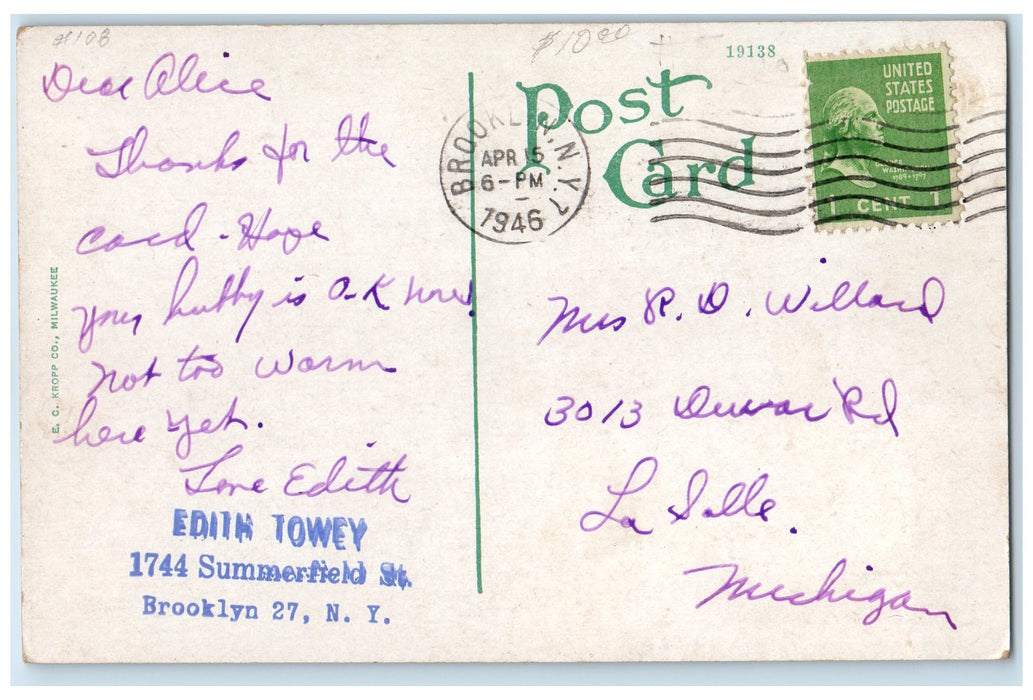 #108
$10.00
19138
Dear Alice
Thanks for the
card - Hope
your hubby is O-K now!
not too warm
here yet.
Love Edith
EDITH TOWEY
1744 Summerfield St.
Brooklyn 27, N. Y.
E. C. KROPP CO., MILWAUKEE
Post
Card
BROOKLYN, N.Y. 7
APR 5
6-PM
1946
UNITED
STATES
POSTAGE
1789-1797
1 CENT 1
Mrs R. D. Willard
3013 Duvar Rd
La Salle.
Michigan